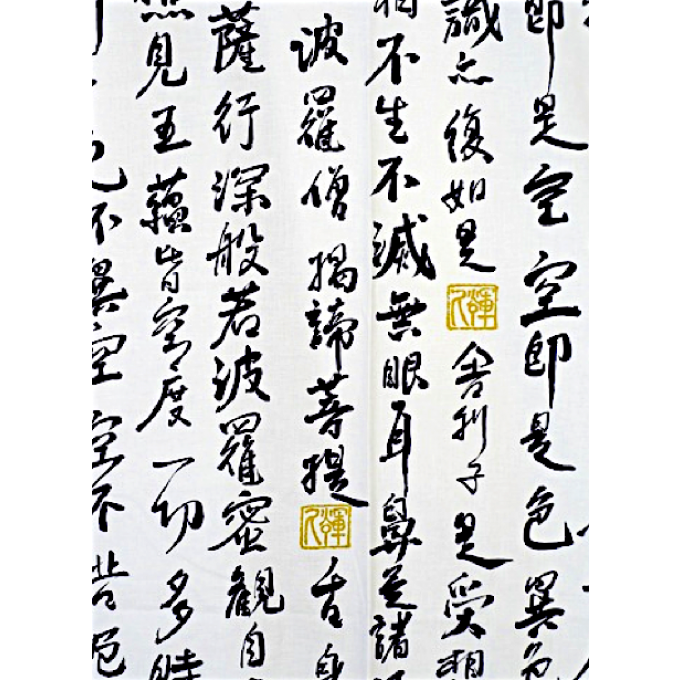 即是空空即是色異色
識亦復如是
舍利子是受想
相不生不滅無眼耳鼻是諸
波羅僧揭諦菩提
舌身
薩行深般若波羅蜜観自
見五蘊皆空度一切多時
色不異空空不